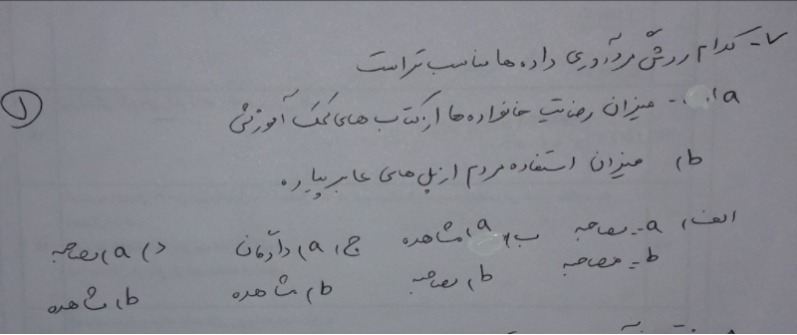 ۷- کدام روش گردآوری داده ها مناسب تر است
a) میزان رضایت خانواده ها از کتاب های کمک آموزشی
①
b) میزان استفاده مردم از پل های عابر پیاده
الف) a- مصاحبه ب) a) مشاهده ج) a) دادگان د) a) مصاحبه
b- مصاحبه b) مصاحبه b) مشاهده b) مشاهده